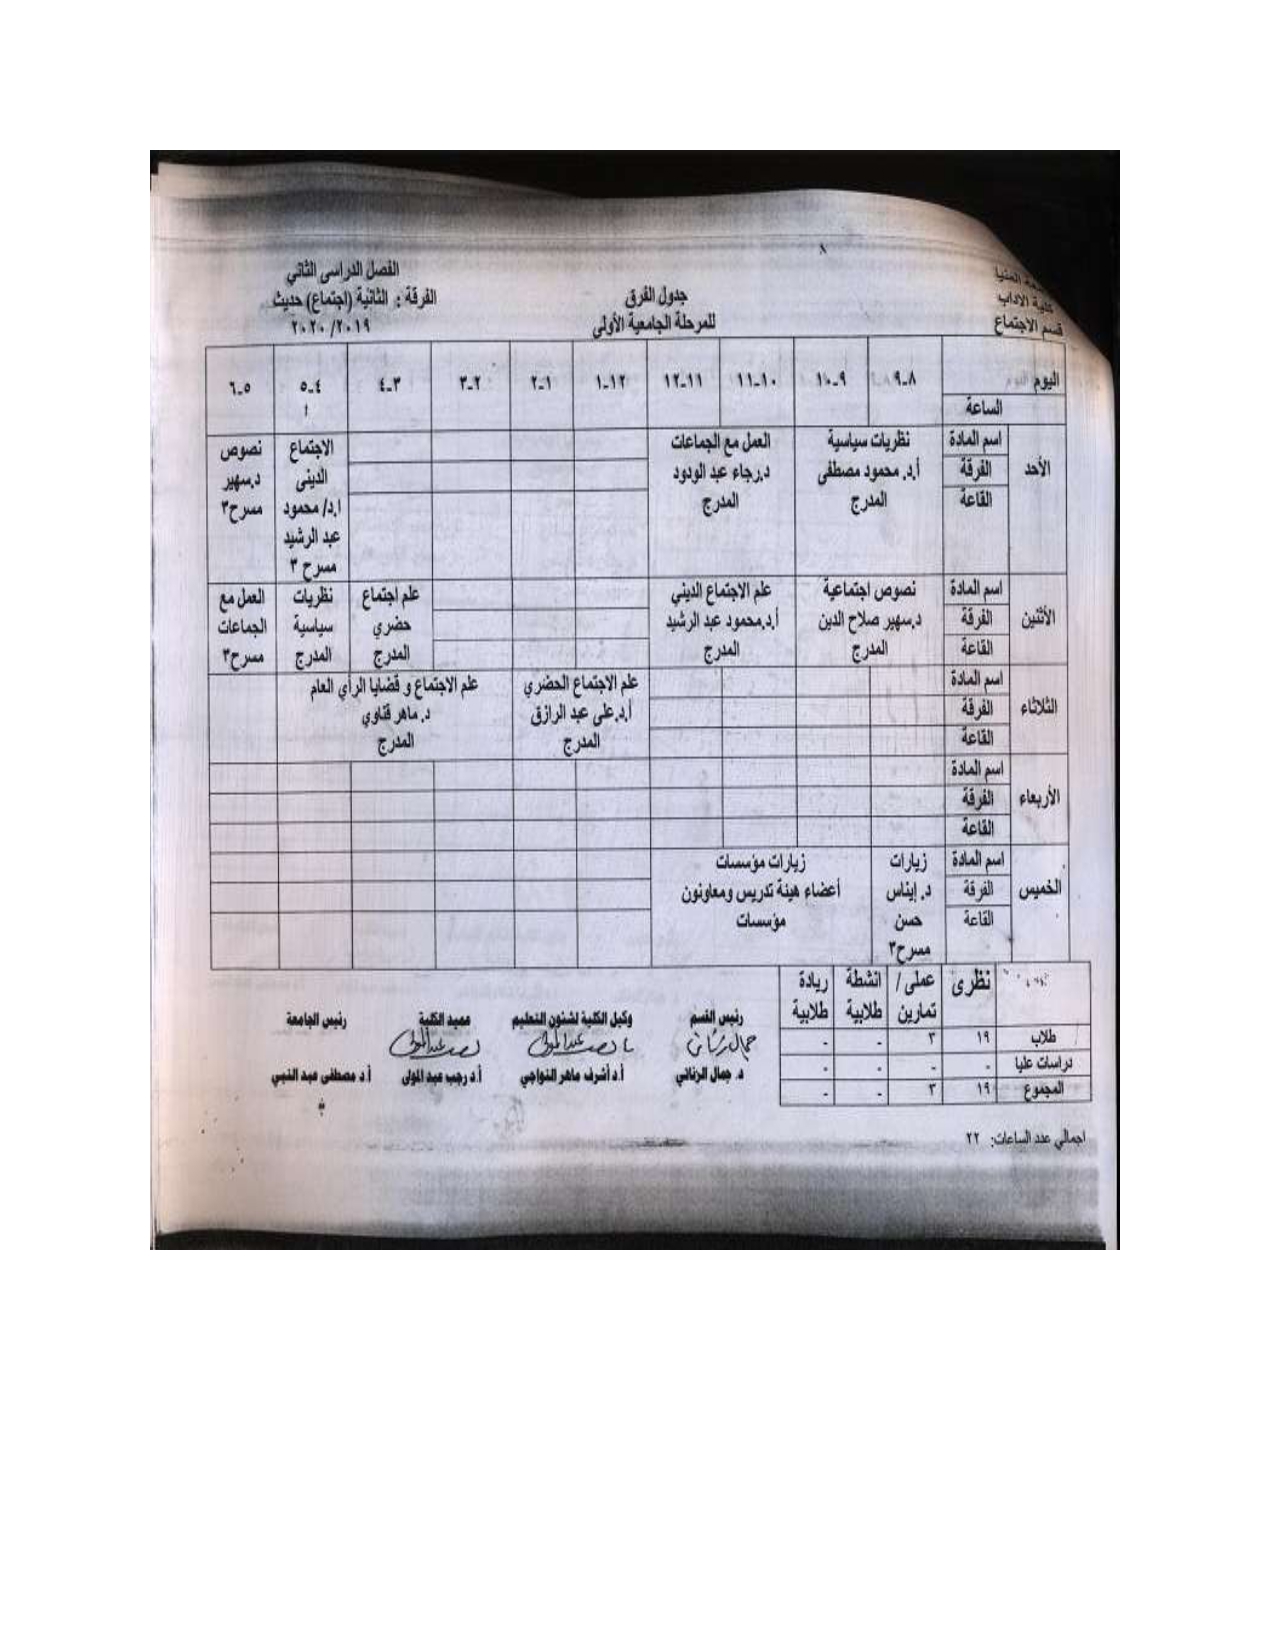 المنيا
كلية الاداب
قسم الاجتماع
جدول الفرق
للمرحلة الجامعية الأولى
الفصل الدراسى الثاني
الفرقة : الثانية (اجتماع) حديث
٢٠١٩/ ٢٠٢٠
اليوم
٨-٩ ٩-١٠ ١٠-١١ ١١-١٢ ١٢-١ ١-٢ ٢-٣ ٣-٤ ٤-٥ ٥-٦
الساعة
الأحد
اسم المادة
الفرقة
القاعة
نظريات سياسية
أ.د. محمود مصطفى
المدرج
العمل مع الجماعات
د.رجاء عبد الودود
المدرج
الاجتماع
الدينى
ا.د/ محمود
عبد الرشيد
مسرح ٣
نصوص
د.سهير
مسرح٣
الأثنين
اسم المادة
الفرقة
القاعة
نصوص اجتماعية
د.سهير صلاح الدين
المدرج
علم الاجتماع الديني
أ.د.محمود عبد الرشيد
المدرج
علم اجتماع
حضري
المدرج
نظريات
سياسية
المدرج
العمل مع
الجماعات
مسرح٣
الثلاثاء
اسم المادة
الفرقة
القاعة
علم الاجتماع الحضري
أ.د.على عبد الرازق
المدرج
علم الاجتماع و قضايا الرأي العام
د. ماهر قناوي
المدرج
الأربعاء
اسم المادة
الفرقة
القاعة
الخميس
اسم المادة
الفرقة
القاعة
زيارات
د. إيناس
حسن
مسرح٣
زيارات مؤسسات
أعضاء هيئة تدريس ومعاونون
مؤسسات
نظرى
عملى /
تمارين
انشطة
طلابية
ريادة
طلابية
طلاب ١٩ ٣ - -
دراسات عليا - - - -
المجموع ١٩ ٣ - -
اجمالي عدد الساعات: ٢٢
رئيس القسم
د. جمال الزناتي
وكيل الكلية لشئون التعليم
أ.د أشرف ماهر النواجي
عميد الكلية
أ.د رجب عبد المولى
رئيس الجامعة
أ.د مصطفى عبد النبي